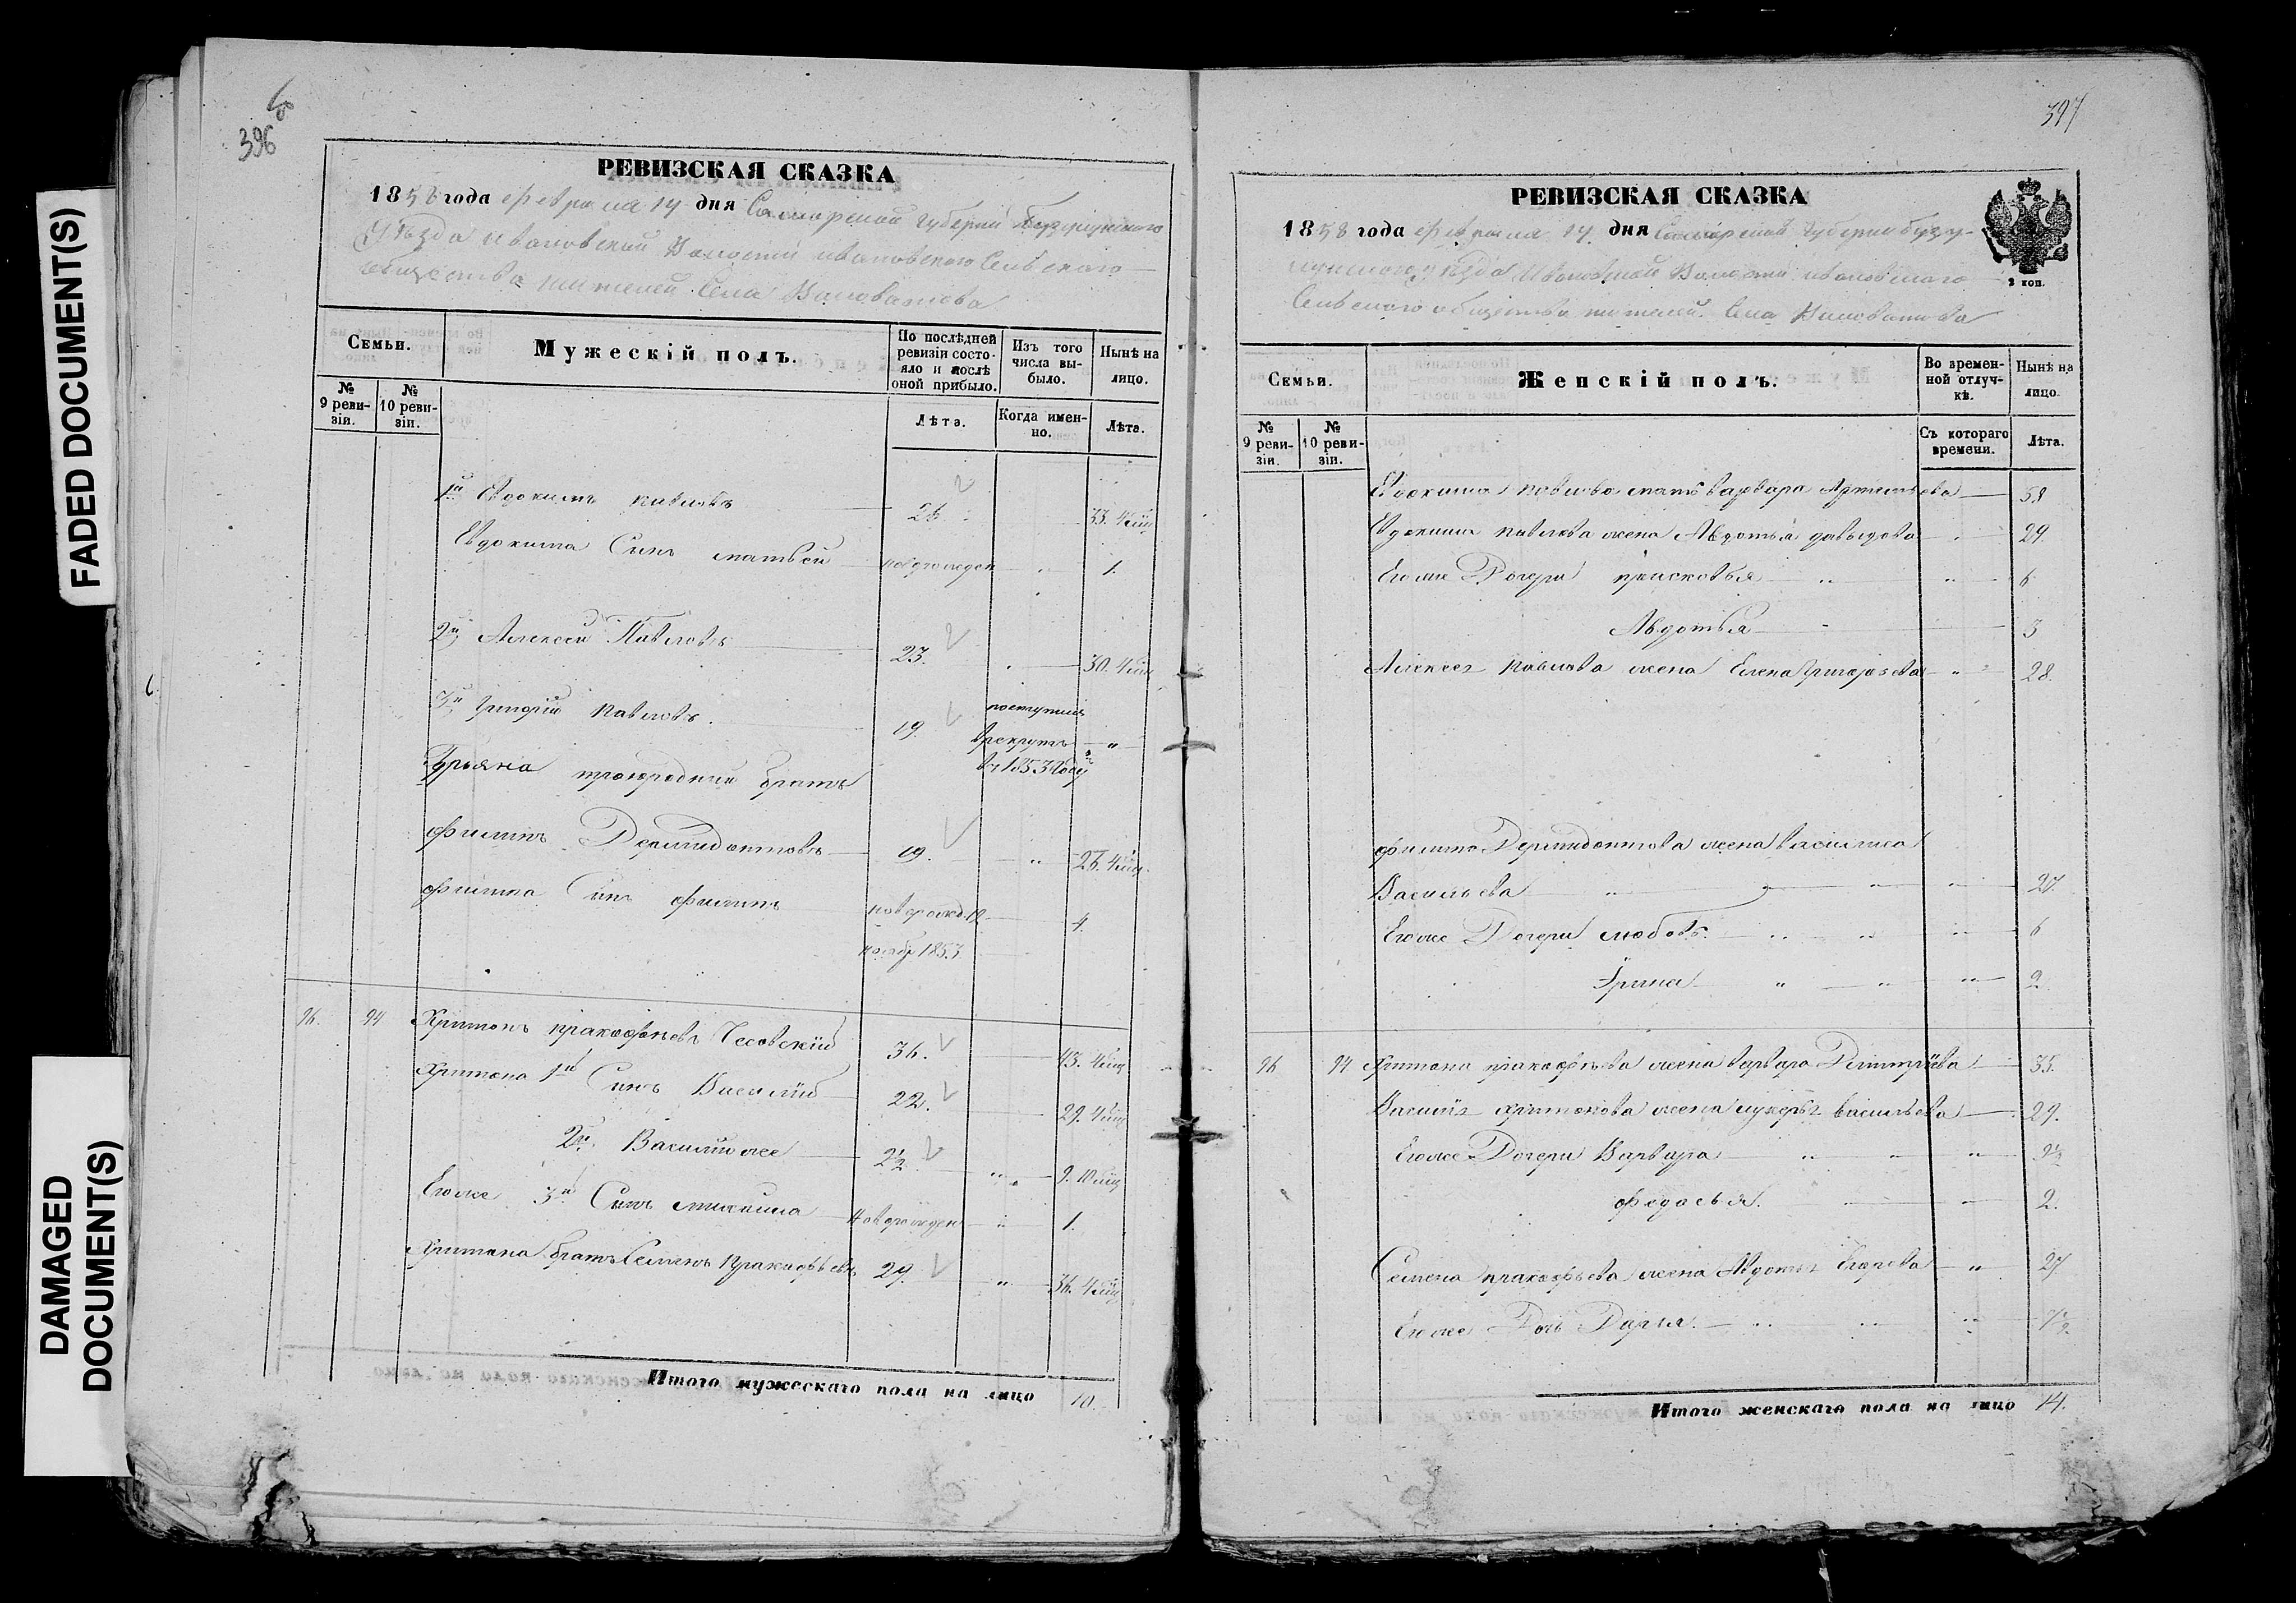 FADED DOCUMENT(S)
DAMAGED
DOCUMENT(S)
396
РЕВИЗСКАЯ СКАЗКА
1858 года февраля 14 дня Самарской губернии Бузулукского
Уѣзда Ивановской Волости Ивановского Сельского
общества жителей Села
Семьи.
Мужескій полъ.
По послѣдней
ревизіи состо-
яло и послѣ
оной прибыло.
Изъ того
числа вы-
было.
Нынѣ на
лицо.
№
9 реви-
зіи.
№
10 реви-
зіи.
Лѣта.
Когда имен-
но.
Лѣта.
1й Евдокимъ павловъ 26. 33. 4мц
Евдокима Сынъ матвей новорожден 1.
2й Алексей Павловъ 23. 30. 4мц
3й григорий павловъ. 19. поступил
врекруты "
въ 1853 году
троюродный братъ
филипъ Дермидонтовъ 19. " 26. 4мц.
филипа Сынъ филипъ новорожд. 12 4.
ноябр 1853
96. 94 Харитонъ пракофьевъ Чесовскій 36. 43. 4мц
Харитона 1й Сынъ Василій 22. 29. 4мц
2й Василий же 2½ " 9. 10 мц
Егоже 3й Сынъ михаила новорожден " 1.
Харитона братъ Семенъ пракофьевъ 29. " 36. 4мц
Итого мужескаго пола на лицо 10.
397
РЕВИЗСКАЯ СКАЗКА
1858 года февраля 14 дня Самарской губернии бузу-
лукского уѣзда Ивановской Волости ивановского
Сельского общества жителей Села
2 коп.
Семьи.
Женскій полъ.
Во времен-
ной отлуч-
кѣ.
Нынѣ на
лицо.
№
9 реви-
зіи.
№
10 реви-
зіи.
Съ котораго
времени.
Лѣта.
Евдокима павлова мать варвара Артемьева 58
Евдокима павлова жена Авдотья давыдова 29.
Егоже Дочери прасковья " " 6
Авдотья 3
Алексея павлова жена Елена григорьева " 28.
филипа Дермидонтова жена василиса
Васильева " " " 27.
Егоже Дочери любовь. " " " 6
Ирина " " " 2
96 94 Харитона пракофьева жена варвара Дмитріева 35.
Василія харитонова жена лукерья васильева 29.
Егоже Дочери Варвара " " "
федосья. 2.
Семена пракофьева жена Авдотья Егорова " 27
Егоже Дочь Дарья. " " "
Итого женскаго пола на лицо 14.